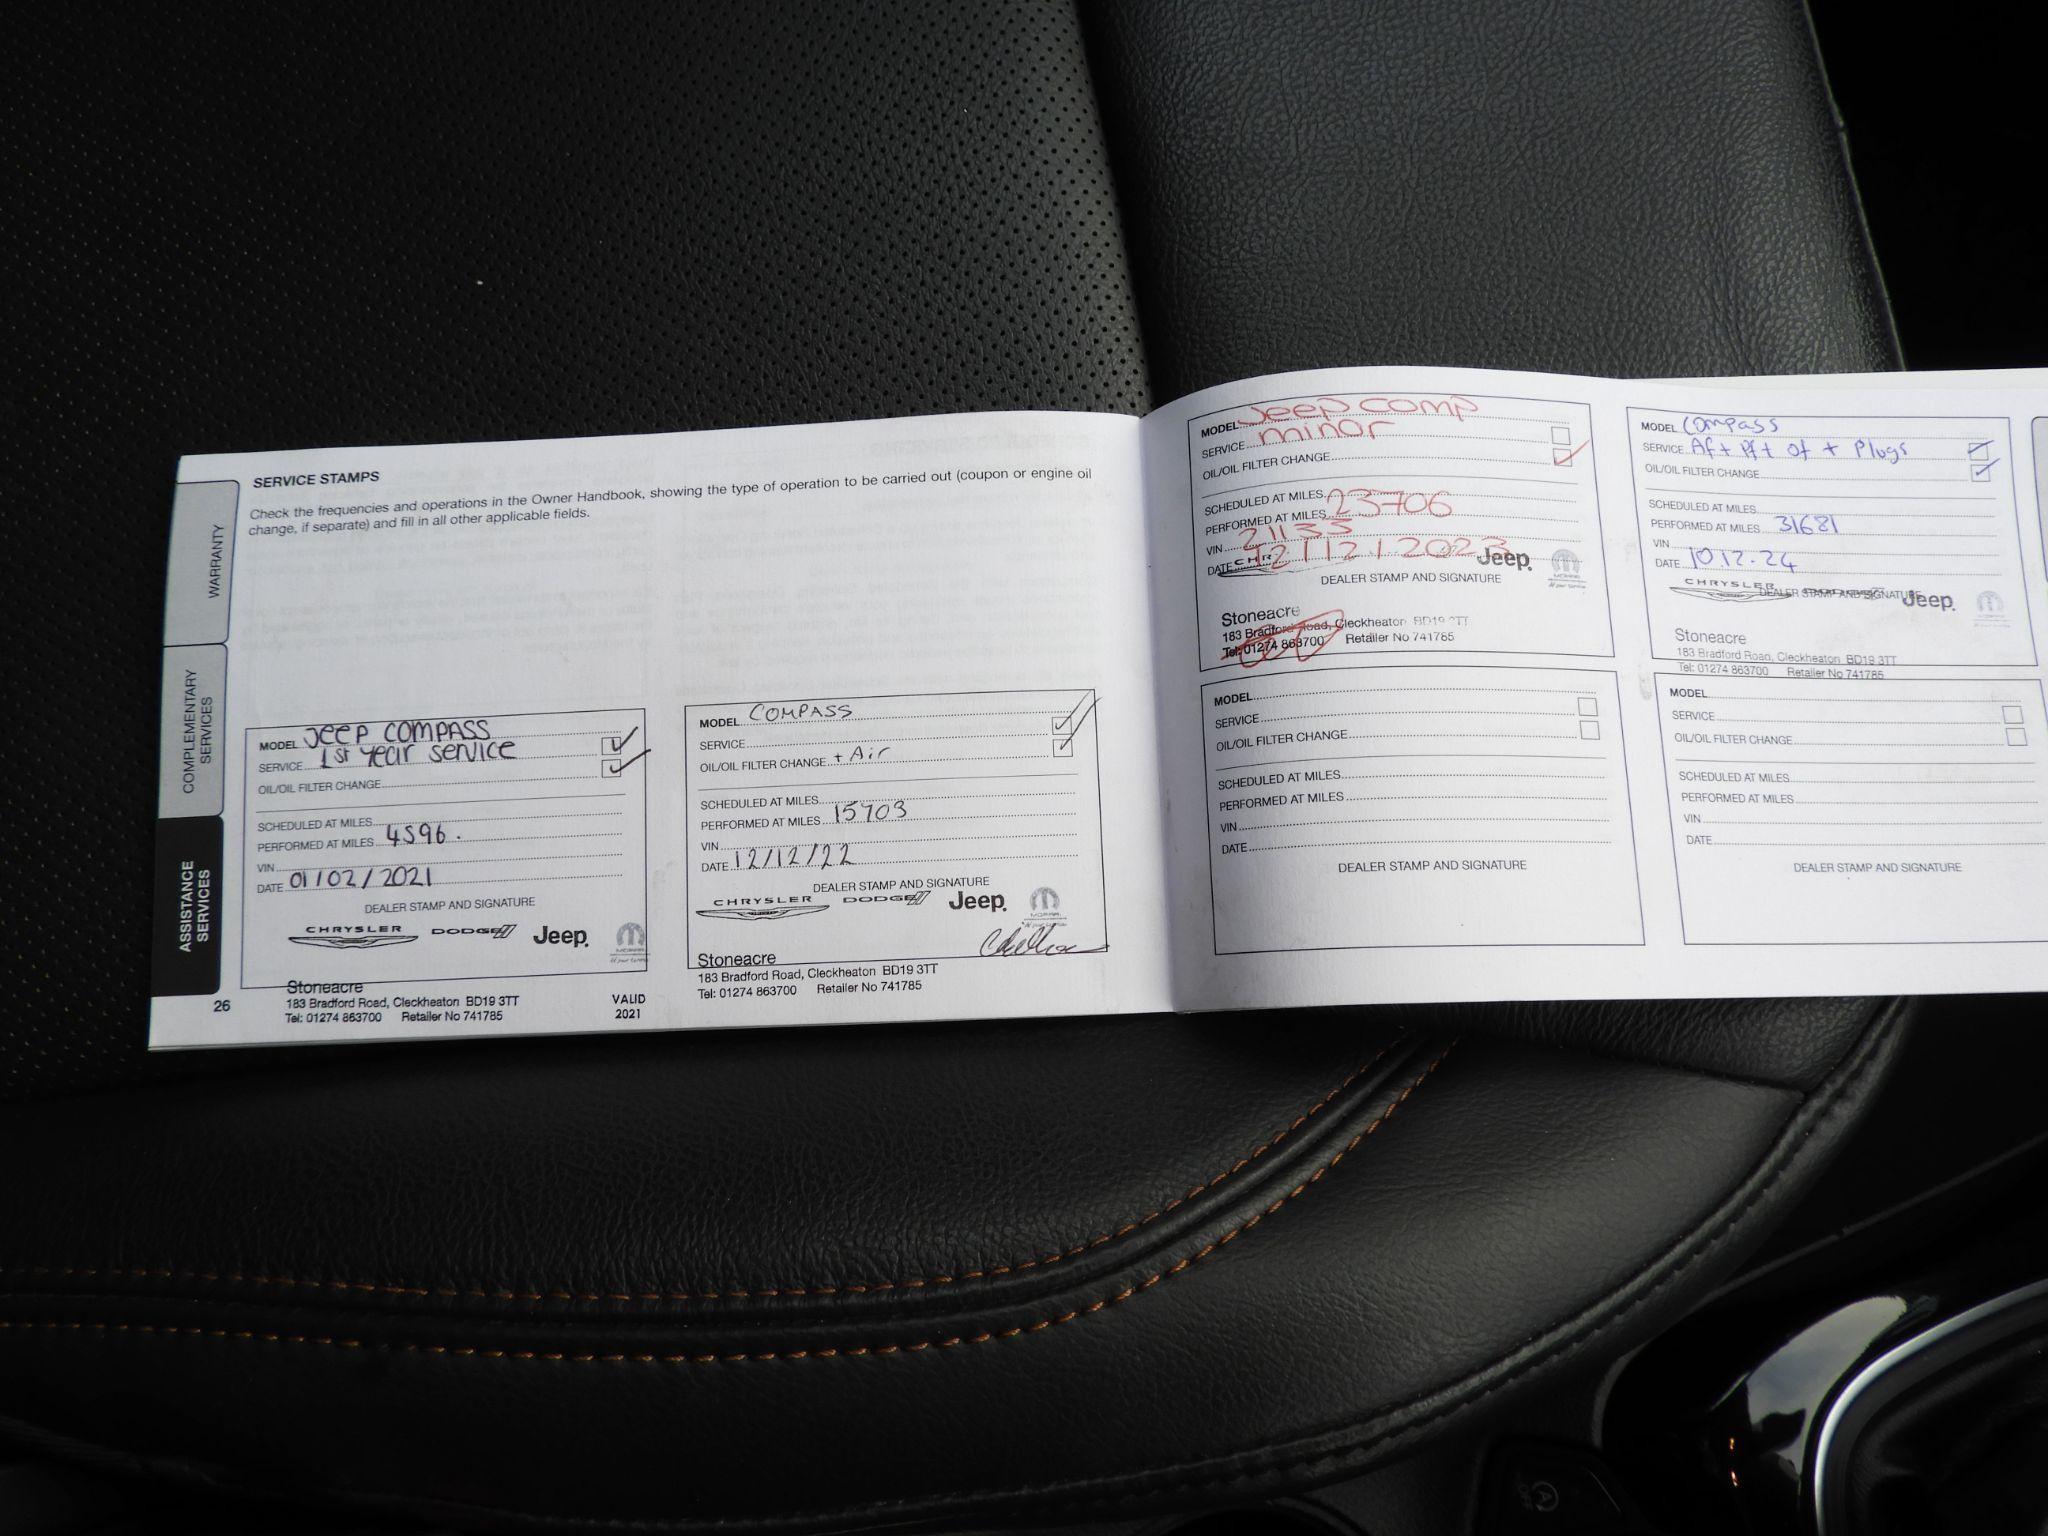 SERVICE STAMPS
Check the frequencies and operations in the Owner Handbook, showing the type of operation to be carried out (coupon or engine oil
change, if separate) and fill in all other applicable fields.
WARRANTY
COMPLEMENTARY
SERVICES
ASSISTANCE
SERVICES
MODEL JEEP COMPASS
SERVICE 1st Year Service
OIL/OIL FILTER CHANGE
SCHEDULED AT MILES
PERFORMED AT MILES 4596.
VIN
DATE 01/02/2021
DEALER STAMP AND SIGNATURE
CHRYSLER DODGE Jeep MOPAR
Stoneacre
183 Bradford Road, Cleckheaton BD19 3TT
Tel: 01274 863700 Retailer No 741785
26
VALID
2021
MODEL COMPASS
SERVICE
OIL/OIL FILTER CHANGE + Air
SCHEDULED AT MILES
PERFORMED AT MILES 15903
VIN
DATE 12/12/22
DEALER STAMP AND SIGNATURE
CHRYSLER DODGE Jeep MOPAR
Stoneacre
183 Bradford Road, Cleckheaton BD19 3TT
Tel: 01274 863700 Retailer No 741785
MODEL Jeep comp
SERVICE minor
OIL/OIL FILTER CHANGE
SCHEDULED AT MILES
PERFORMED AT MILES 23706
VIN 21135
DATE 12/12/2023
CHR Jeep MOPAR
DEALER STAMP AND SIGNATURE
Stoneacre
183 Bradford Road, Cleckheaton BD19 3TT
Tel: 01274 863700 Retailer No 741785
MODEL Compass
SERVICE Af + Pf + Of + Plugs
OIL/OIL FILTER CHANGE
SCHEDULED AT MILES
PERFORMED AT MILES 31681
VIN
DATE 10.12.24
CHRYSLER Jeep
DEALER STAMP AND SIGNATURE
Stoneacre
183 Bradford Road, Cleckheaton BD19 3TT
Tel: 01274 863700 Retailer No 741785
MODEL
SERVICE
OIL/OIL FILTER CHANGE
SCHEDULED AT MILES
PERFORMED AT MILES
VIN
DATE
DEALER STAMP AND SIGNATURE
MODEL
SERVICE
OIL/OIL FILTER CHANGE
SCHEDULED AT MILES
PERFORMED AT MILES
VIN
DATE
DEALER STAMP AND SIGNATURE
OFF